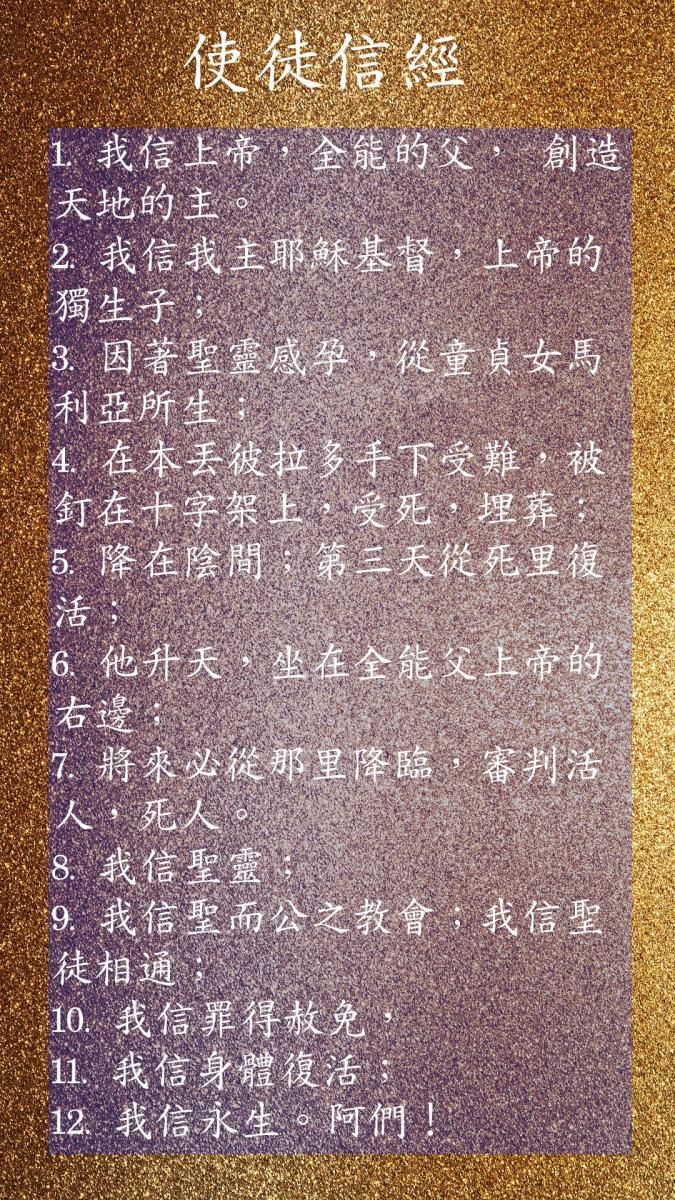 使徒信經
1. 我信上帝，全能的父， 創造
天地的主。
2. 我信我主耶穌基督，上帝的
獨生子；
3. 因著聖靈感孕，從童貞女馬
利亞所生；
4. 在本丟彼拉多手下受難，被
釘在十字架上，受死，埋葬；
5. 降在陰間；第三天從死里復
活；
6. 他升天，坐在全能父上帝的
右邊；
7. 將來必從那里降臨，審判活
人，死人。
8. 我信聖靈；
9. 我信聖而公之教會；我信聖
徒相通；
10. 我信罪得赦免，
11. 我信身體復活；
12. 我信永生。阿們！